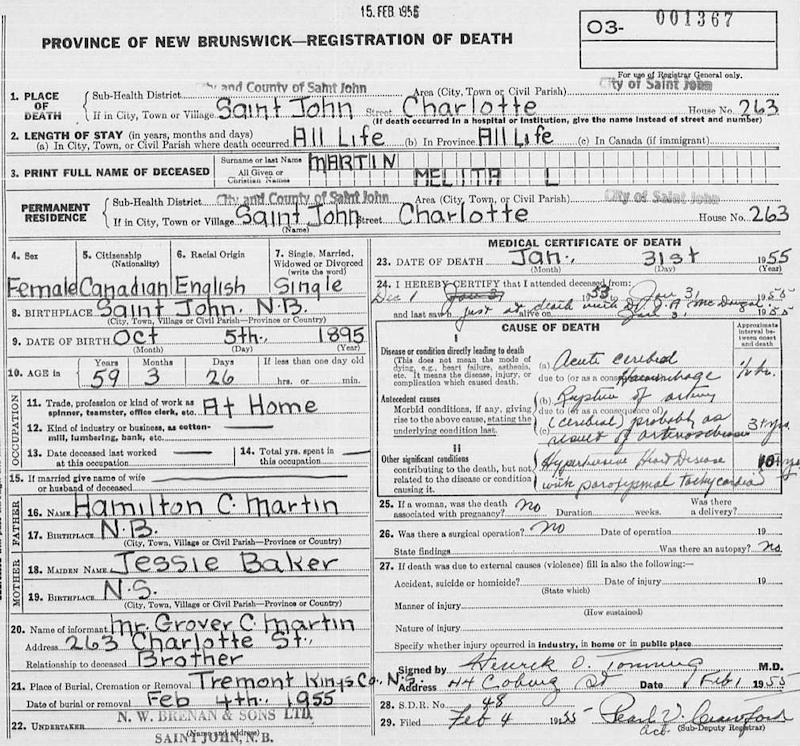 15. FEB. 1955
PROVINCE OF NEW BRUNSWICK—REGISTRATION OF DEATH
03- 001367
For use of Registrar General only.
1. PLACE OF DEATH
Sub-Health District City and County of Saint John Area (City, Town or Civil Parish) City of Saint John
If in City, Town or Village Saint John Street Charlotte House No. 263
(If death occurred in a hospital or institution, give the name instead of street and number)
2. LENGTH OF STAY (in years, months and days)
(a) In City, Town, or Civil Parish where death occurred All Life (b) In Province All Life (c) In Canada (if immigrant)
3. PRINT FULL NAME OF DECEASED
Surname or last Name MARTIN
All Given or Christian Names MELITA L
PERMANENT RESIDENCE
Sub-Health District City and County of Saint John Area (City, Town, or Civil Parish) City of Saint John
If in City, Town or Village Saint John Street Charlotte House No. 263
(Name)
4. Sex Female
5. Citizenship (Nationality) Canadian
6. Racial Origin English
7. Single, Married, Widowed or Divorced (write the word) Single
8. BIRTHPLACE Saint John, N.B.
(City, Town, Village or Civil Parish—Province or Country)
9. DATE OF BIRTH Oct 5th., 1895
(Month) (Day) (Year)
10. AGE in Years 59 Months 3 Days 26 If less than one day old hrs. or min.
OCCUPATION
11. Trade, profession or kind of work as spinner, teamster, office clerk, etc. At Home
12. Kind of industry or business, as cotton-mill, lumbering, bank, etc.
13. Date deceased last worked at this occupation
14. Total yrs. spent in this occupation
15. If married give name of wife or husband of deceased
FATHER
16. NAME Hamilton C. Martin
17. BIRTHPLACE N.B.
(City, Town, Village or Civil Parish—Province or Country)
MOTHER
18. MAIDEN NAME Jessie Baker
19. BIRTHPLACE N.S.
(City, Town, Village or Civil Parish—Province or Country)
20. Name of informant Mr. Grover C. Martin
Address 263 Charlotte St.,
Relationship to deceased Brother
21. Place of Burial, Cremation or Removal Tremont Kings Co. N.S.
Date of burial or removal Feb 4th., 1955
22. UNDERTAKER N. W. BRENAN & SONS LTD,
(Name and address)
SAINT JOHN, N.B.
MEDICAL CERTIFICATE OF DEATH
23. DATE OF DEATH Jan., 31st 1955
(Month) (Day) (Year)
24. I HEREBY CERTIFY that I attended deceased from:
Dec 1 Jan 31 1955
and last saw alive on just at death with Dr. McDougal Jan 31 1955
CAUSE OF DEATH
Approximate interval between onset and death
I
Disease or condition directly leading to death
(This does not mean the mode of dying, e.g., heart failure, asthenia, etc. It means the disease, injury, or complication which caused death.
(a) Acute cerebral 1/2 hr.
due to (or as a consequence of) Haemorrhage
Antecedent causes
Morbid conditions, if any, giving rise to the above cause, stating the underlying condition last.
(b) Rupture of artery
due to (or as a consequence of)
(c) (cerebral) probably as 3+ yrs.
result of arteriosclerosis
II
Other significant conditions
contributing to the death, but not related to the disease or condition causing it.
Hypertensive Heart Disease 10+ yrs
with paroxysmal tachycardia
25. If a woman, was the death associated with pregnancy? No Duration weeks. Was there a delivery?
26. Was there a surgical operation? No Date of operation 19
State findings Was there an autopsy? No
27. If death was due to external causes (violence) fill in also the following:—
Accident, suicide or homicide? Date of injury 19
(State which)
Manner of injury
(How sustained)
Nature of injury
Specify whether injury occurred in industry, in home or in public place
Signed by Henrik O. M.D.
Address 44 Coburg St Date Feb 1 1955
28. S.D.R. No. 48
29. Filed Feb 4 1955 Pearl V. Crawford
Act. (Sub-Deputy Registrar)